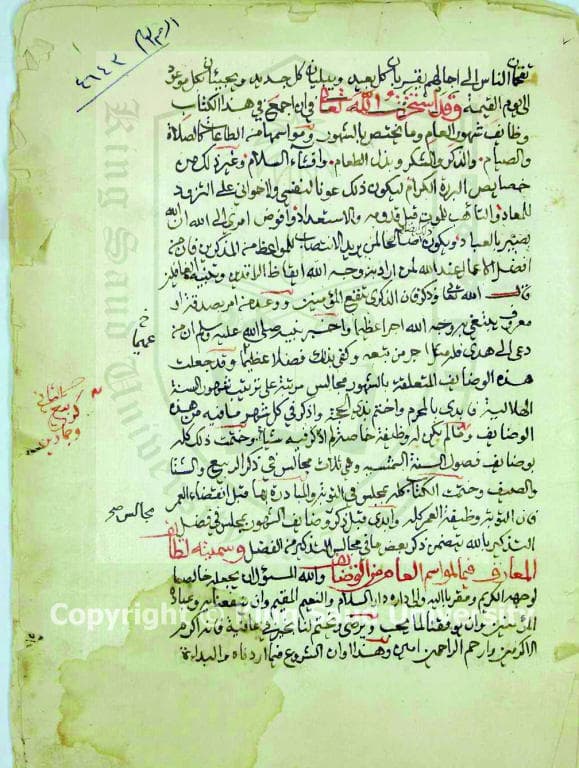 ٤٦٤٣
الناس إلى اجالهم يقربان كل بعيد ويبليان كل جديد ويجيبان بكل موعود
الى يوم القيمة وقد استخرت الله تعالى في ان اجمع في هذا الكتاب
وظايف شهور العام وما يختص بالشهور ومواسمها من الطاعات كالصلاة
والصيام والذكر والشكر وبذل الطعام وافشاء السلام وغير ذلك من
خصايص البررة الكرام ليكون ذلك عونا لنفسي ولاخواني على التزود
للمعاد والتاهب للموت قبل قدومه والاستعداد وافوض امري الى الله ان الله
بصير بالعباد ويكون ايضا صالحا لمن يريد الانتصاب للمواعظ من المذكرين فان من
افضل الاعمال عند الله لمن اراد به وجه الله ايقاظ الراقدين وتنبيه الغافلين
قال الله تعالى وذكر فان الذكرى تنفع المؤمنين ووعد من امر بصدقة او
معروف يبتغي به وجه الله اجرا عظيما واخبر نبيه صلى الله عليه وسلم ان من
دعى الى هدى فله مثل اجر من تبعه وكفى بذلك فضلا عظيما وقد جعلت
هذه الوضايف المتعلقة بالشهور مجالس مرتبة على ترتيب شهور السنة
الهلالية فابدى بالمحرم واختم بذي الحجة واذكر في كل شهر ما فيه من هذه
الوضايف وما لم يكن له وظيفة خاصة لم اذكر فيه شيأ وختمت ذلك كله
بوضايف فصول السنة الشمسية وهي ثلاث مجالس في ذكر الربيع والشتا
والصيف وختمت الكتاب كله بمجلس في التوبة والمبادرة بها قبل انقضاء العمر
فان التوبة وظيفة العمر كله وابدى قبل ذكر وضايف الشهور بمجلس في فضل
التذكير بالله يتضمن ذكر بعض ما في مجالس التذكير من الفضل وسميته لطايف
المعارف فيما لمواسم العام من الوضايف والله المسؤل ان يجعله خالصا
لوجهه الكريم ومقربا اليه والى داره دار السلام والنعيم المقيم وان ينفعنا به وعباده
المؤمنين وان يوفقنا لما يحب ويرضى ويختم لنا بخير في عافية فانه اكرم
الاكرمين وارحم الراحمين امين وهذا اوان الشروع فيما اردناه والبداءة
مجالس
Copyright © King Saud University
King Saud University